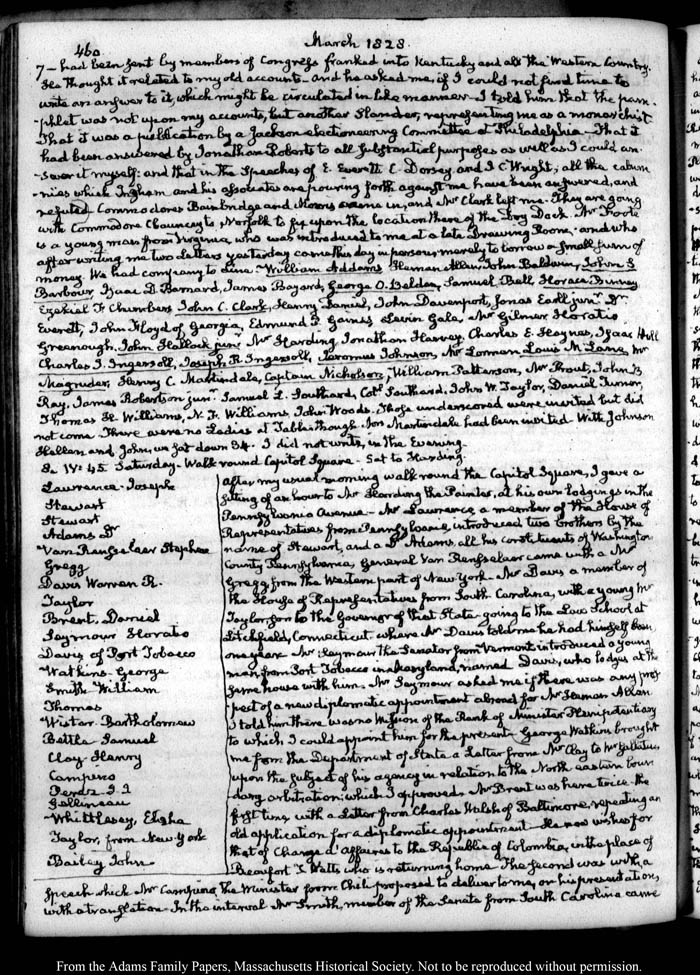 460
March 1828.
7 – had been sent by members of Congress franked into Kentucky and all the Western Country.
He thought it related to my old accounts – and he asked me, if I could not find time to
write an answer to it, which might be circulated in like manner – I told him that the pam-
-phlet was not upon my accounts, but another Slander, representing me as a monarchist
That it was a publication by a Jackson electioneering Committee at Philadelphia – That it
had been answered by Jonathan Roberts to all substantial purposes as well as I could an-
-swer it myself: and that in the Speeches of E. Everett C. Dorsey and J. C. Wright, all the calum-
-nies which Ingham and his associates are pouring forth against me have been answered, and
refuted. Commodores Bainbridge and Morris came in, and Mr Clark left me. They are going
with Commodore Chauncey to Norfolk to fix upon the location there of the Dry Dock. Mr Foote
is a young man from Virginia, who was introduced to me at a late Drawing Room, and who
after writing me two Letters yesterday came this day in person, merely to borrow a small sum of
money. We had company to dine – William Addams Heman Allen, John Baldwin, John S
Barbour, Isaac D. Barnard, James Bayard, George O. Belden, Samuel Bell Horace Binney
Ezekiel F Chambers John C. Clark, Henry Daniel, John Davenport, Jonas Earll junr Dr
Everett, John Floyd of Georgia, Edmund P. Gaines Levin Gale, Mr Gilmer Horatio
Greenough, John Hallock junr Mr Harding, Jonathan Harvey, Charles E. Haynes, Isaac Hill
Charles J. Ingersoll, Joseph R. Ingersoll, Jeromus Johnson, Mr Lorman Louis M Lane, Mr
Magruder, Henry C. Martindale, Captain Nicholson, William Patterson, Mr Prout, John B
Ray, James Robertson junr Samuel L. Southard, Coll Southard, John W. Taylor, Daniel Turner,
Thomas H. Williams, N. F. Williams, John Woods. Those underscored were invited but did
not come. There were no Ladies at Table though Mrs Martindale had been invited. With Johnson
Hellen and John, we sat down 34. I did not write, in the Evening.
8. IV: 45 Saturday – Walk round Capitol Square – Sat to Harding.
Lawrence Joseph
Stewart
Stewart
Adams Dr
Van Rensselaer Stephen
Gregg
Davis Warren R.
Taylor
Brent. Daniel
Seymour Horatio
Davis of Port Tobacco
Watkins George
Smith William
Thomas
Wistar Bartholomew
Bettle Samuel
Clay Henry
Campino
Gallineau
Whittlesey, Elisha
Taylor, from New York
Bailey John
After my usual morning walk round the Capitol Square, I gave a
sitting of an hour to Mr Harding the Painter, at his own lodgings in the
Pennsylvania Avenue – Mr Lawrence, a member of the House of
Representatives from Pennsylvania, introduced two brothers by the
name of Stewart, and a Dr Adams, all his constituents of Washington
County Pennsylvania, General Van Rensselaer came with a Mr
Gregg, from the Western part of New York – Mr Davis a member of
the House of Representatives from South Carolina, with a young Mr
Taylor, son to the Governor of that State going to the Law School at
Litchfield, Connecticut where Mr Davis told me he had himself been,
one year. Mr Seymour the Senator from Vermont introduced a young
man from Port Tobacco in Maryland, named Davis, who lodges at the
same house with him. Mr Seymour asked me if there was any pros-
pect of a new diplomatic appointment abroad for Mr Heman Allen
I told him there was no Mission of the Rank of Minister Plenipotentiary
to which I could appoint him for the present – George Watkins brought
me from the Department of State a Letter from Mr Clay to Mr Gallatin,
upon the subject of his agency in relation to the North eastern boun-
dary arbitration: which I approved. Mr Brent was here twice the
first time with a Letter from Charles Walsh of Baltimore, repeating an
old application for a diplomatic appointment. He now wishes for
that of Chargé d'Affaires to the Republic of Colombia, in the place of
Beaufort T. Watts who is returning home. The second was with a
speech which Mr Campino the Minister from Chili proposed to deliver to me, on his presentation,
with a translation. In the interval Mr Smith, member of the Senate from South Carolina came
From the Adams Family Papers, Massachusetts Historical Society. Not to be reproduced without permission.